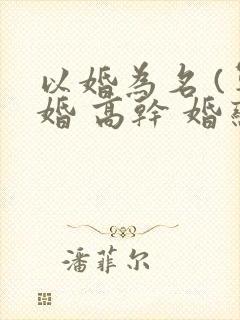 以婚為名(
婚 高幹 婚
潘菲尔